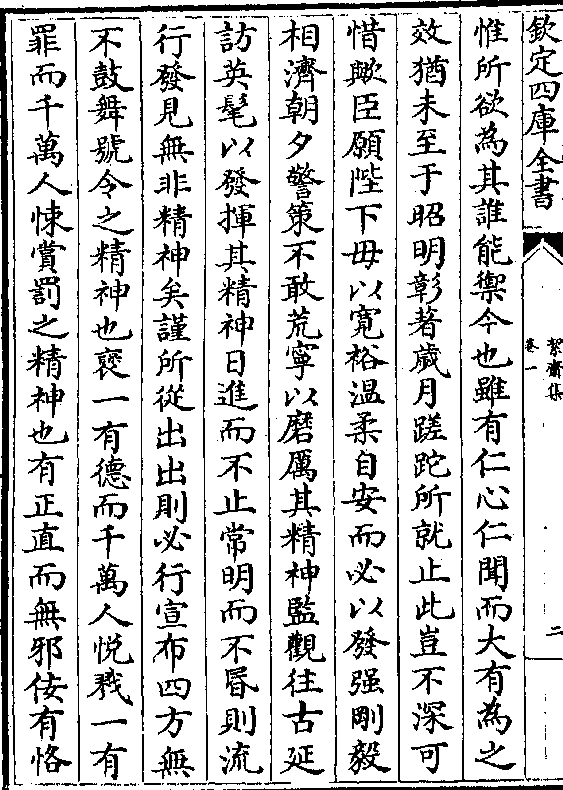 欽定四庫全書
絜齋集
卷一
二
惟所欲為其誰能禦今也雖有仁心仁聞而大有為之
效猶未至于昭明彰著歲月蹉跎所就止此豈不深可
惜歟臣願陛下毋以寛裕温柔自安而必以發强剛毅
相濟朝夕警策不敢荒寧以磨厲其精神監觀往古延
訪英髦以發揮其精神日進而不止常明而不昏則流
行發見無非精神矣謹所從出出則必行宣布四方無
不鼓舞號令之精神也褒一有德而千萬人悦戮一有
罪而千萬人悚賞罰之精神也有正直而無邪佞有恪